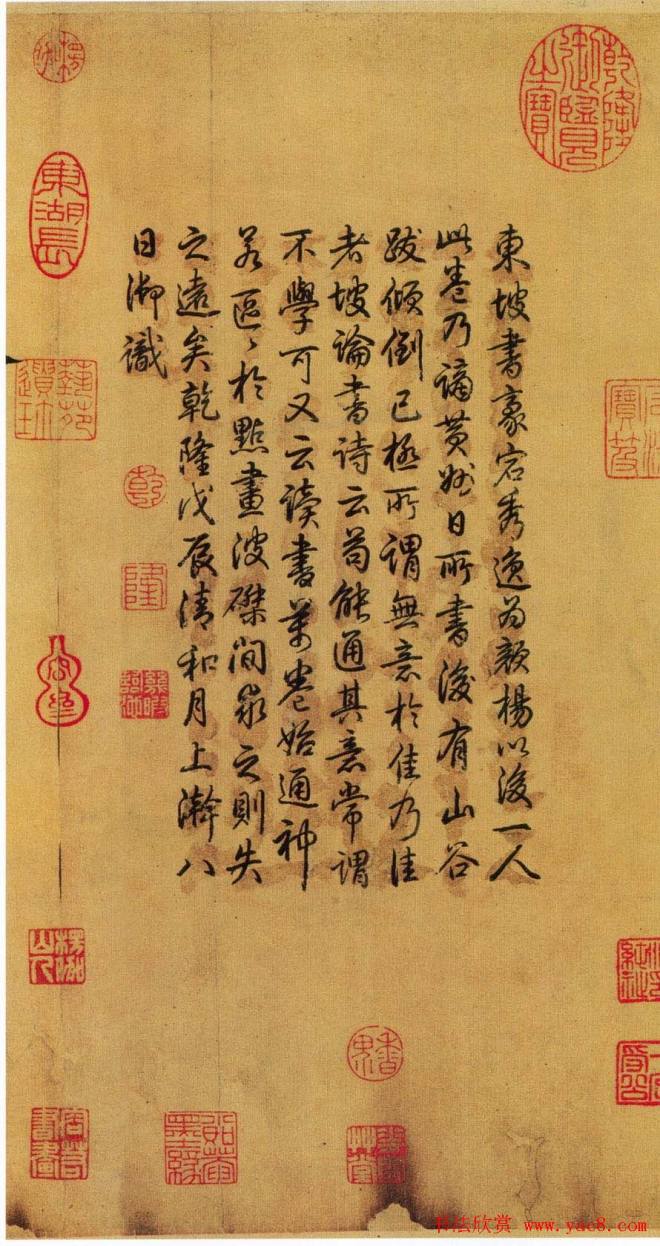 東坡書豪宕秀逸為顏楊以後一人
此卷乃謫黃州日所書後有山谷
跋傾倒已極所謂無意於佳乃佳
者坡論書詩云苟能通其意常謂
不學可又云讀書萬卷始通神
若區〻於點畫波磔間求之則失
之遠矣乾隆戊辰清和月上澣八
日御識
乾隆御覽之寶
東湖長
乾
隆
幾暇臨池
书法欣赏 www.yac8.com